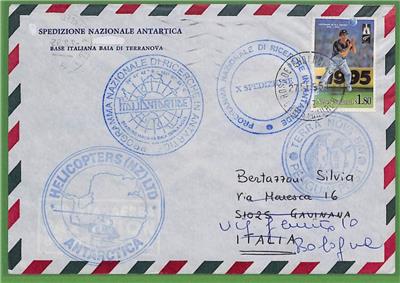 SPEDIZIONE NAZIONALE ANTARTICA
BASE ITALIANA BAIA DI TERRANOVA
PROGRAMMA NAZIONALE DI RICERCHE IN ANTARTIDE
ITALIANTARTIDE
PROGRAMMA NAZIONALE DI RICERCHE IN ANTARTIDE
X SPEDIZIONE
1995
1.80
HELICOPTERS (NZ) LTD
ANTARCTICA
TERRA NOVA BAY
Bertazzoni Silvia
via Maresca 16
51025 Gavinana
ITALIA
Bologna